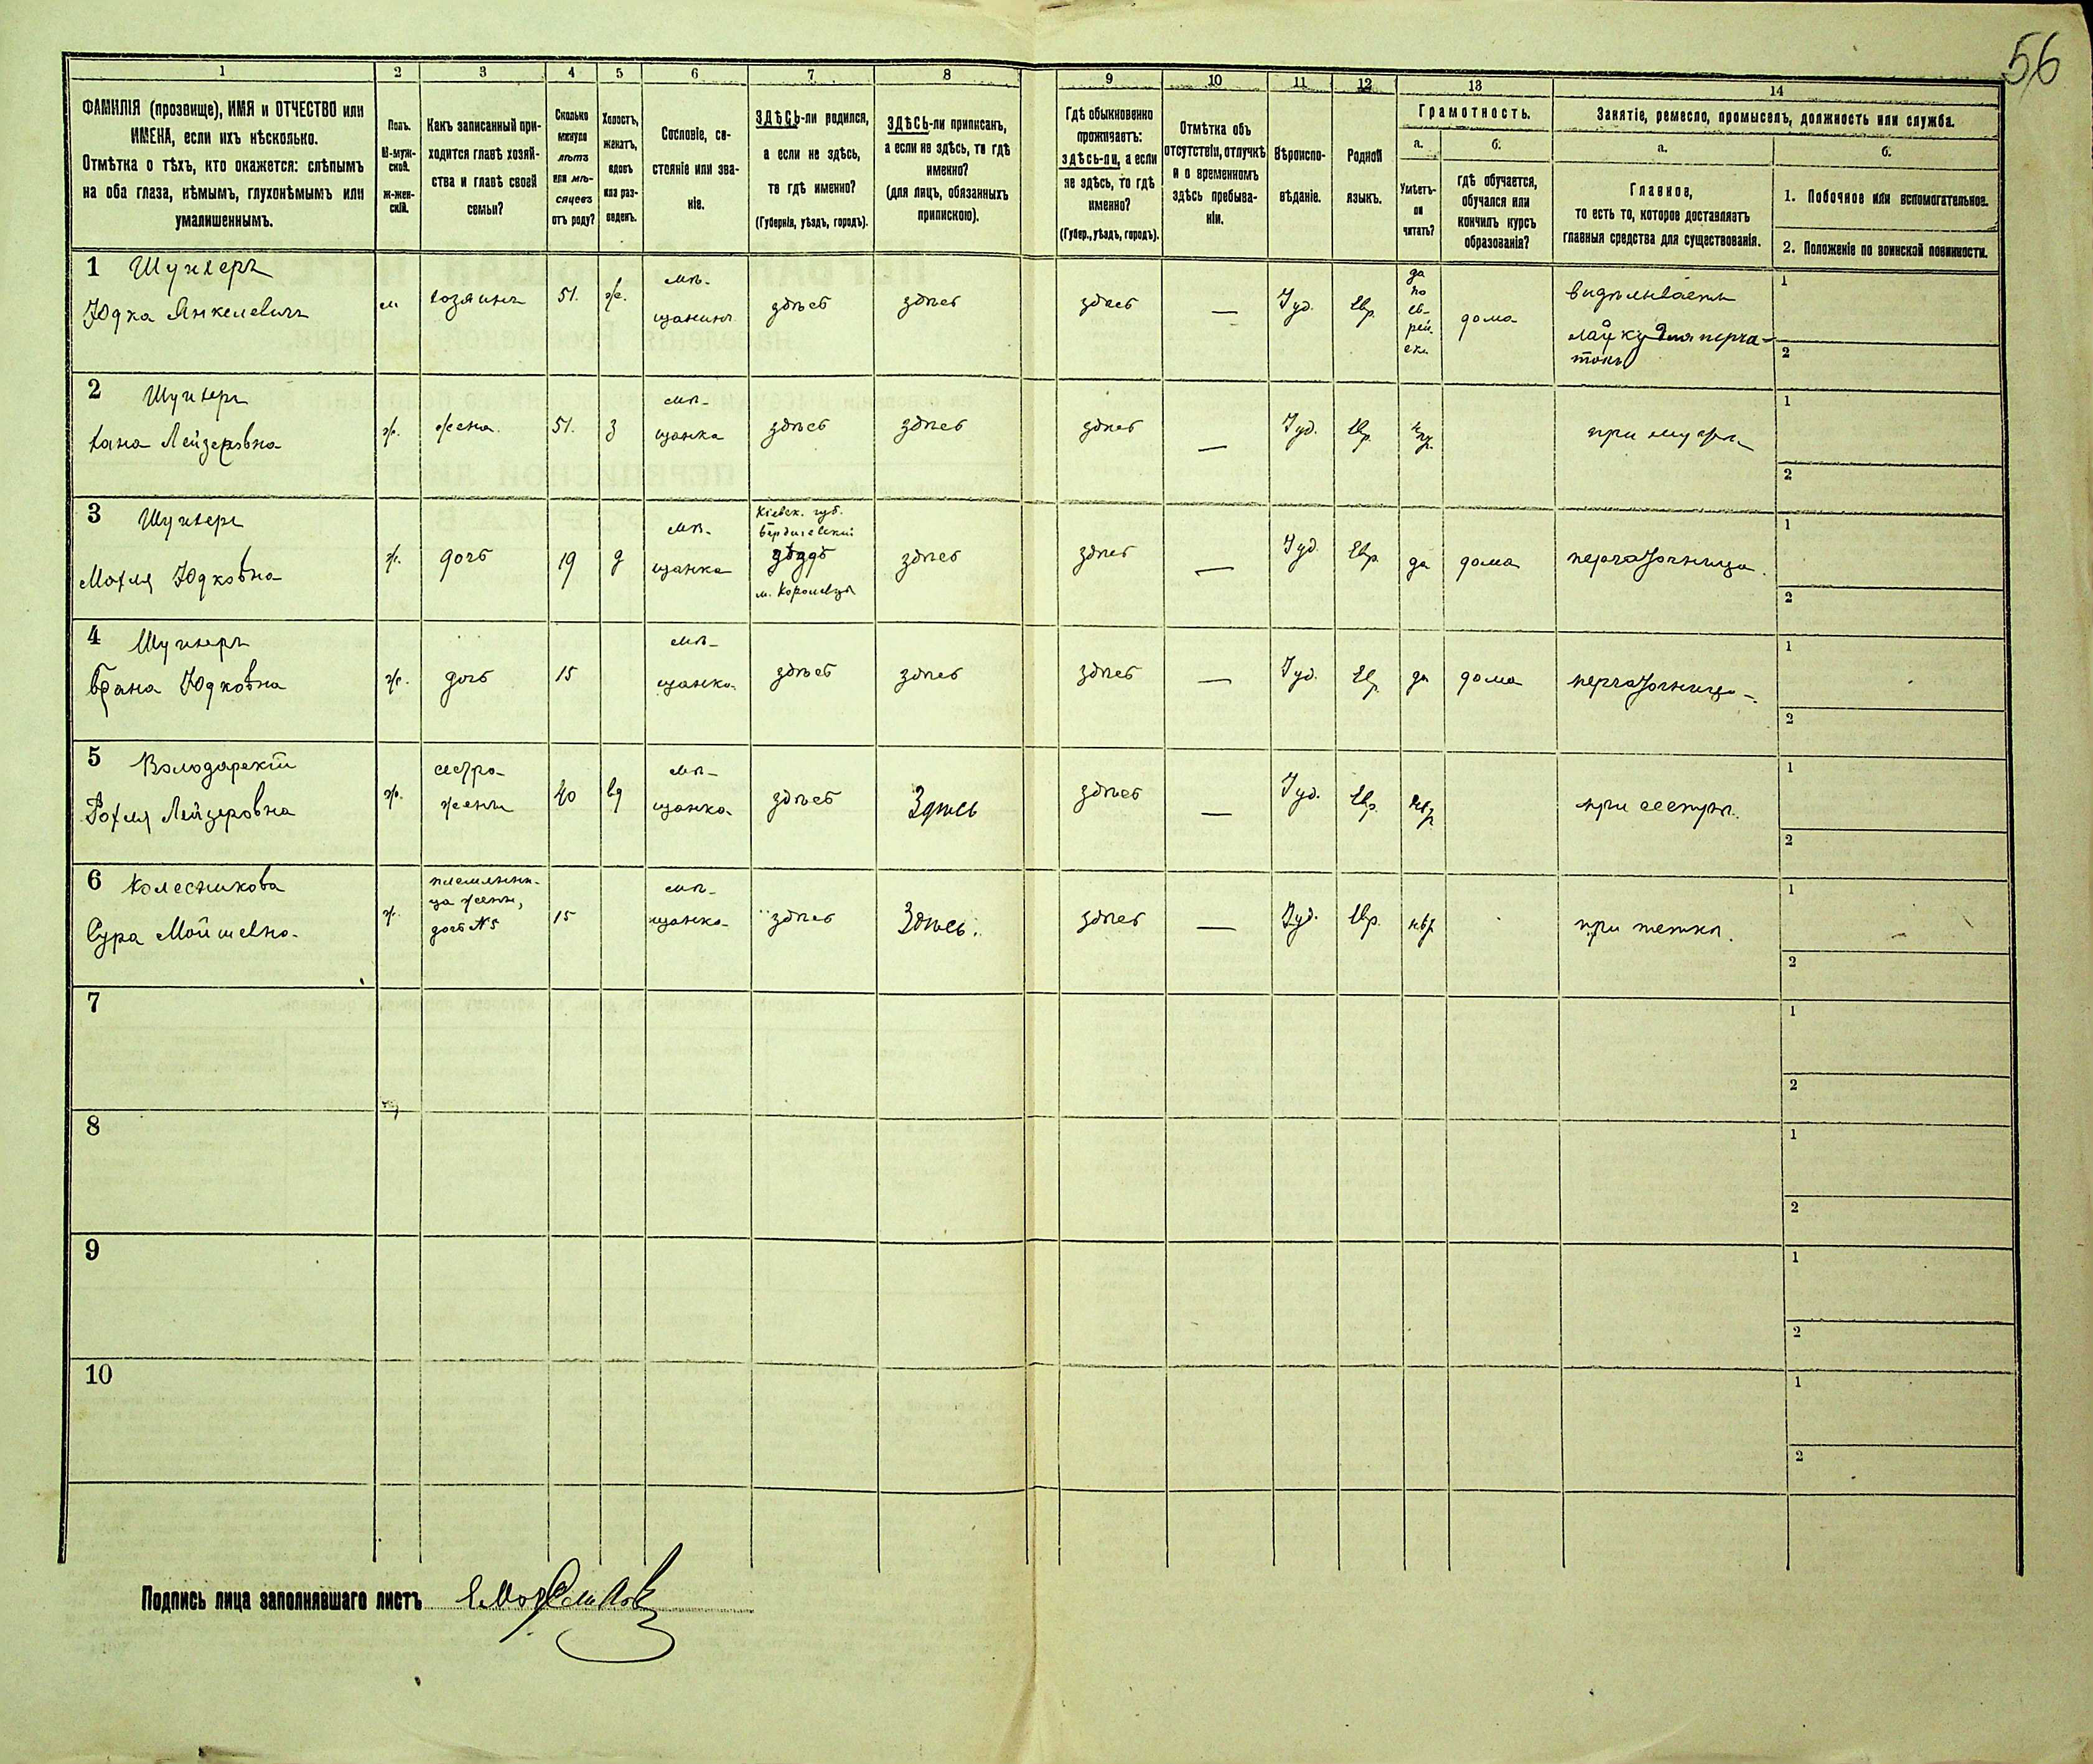 56
1
2
3
4
5
6
7
8
9
10
11
12
13
14
ФАМИЛІЯ (прозвище), ИМЯ и ОТЧЕСТВО или
ИМЕНА, если ихъ нѣсколько.
Отмѣтка о тѣхъ, кто окажется: слѣпымъ
на оба глаза, нѣмымъ, глухонѣмымъ или
умалишеннымъ.
Полъ.
М-муж-
ской.
Ж-жен-
скій.
Какъ записанный при-
ходится главѣ хозяй-
ства и главѣ своей
семьи?
Сколько
минуло
лѣтъ
или мѣ-
сяцевъ
отъ роду?
Холостъ,
женатъ,
вдовъ
или раз-
веденъ.
Сословіе, со-
стояніе или зва-
ніе.
ЗДѢСЬ-ли родился,
а если не здѣсь,
то гдѣ именно?
(Губернія, уѣздъ, городъ).
ЗДѢСЬ-ли приписанъ,
а если не здѣсь, то гдѣ
именно?
(для лицъ, обязанныхъ
припискою).
Гдѣ обыкновенно
проживаетъ:
здѣсь-ли, а если
не здѣсь, то гдѣ
именно?
(Губер., уѣздъ, городъ).
Отмѣтка объ
отсутствіи, отлучкѣ
и о временномъ
здѣсь пребыва-
ніи.
Вѣроиспо-
вѣданіе.
Родной
языкъ.
Грамотность.
а.
Умѣетъ-
ли
читать?
б.
гдѣ обучается,
обучался или
кончилъ курсъ
образованія?
Занятіе, ремесло, промыселъ, должность или служба.
а.
Главное,
то есть то, которое доставляетъ
главныя средства для существованія.
б.
1. Побочное или вспомогательное.
2. Положеніе по воинской повинности.
1 Шункеръ
Юдка Янкелевичъ
м
хозяинъ
51.
ж.
мѣ-
щанинъ
здѣсь
здѣсь
здѣсь
—
Іуд.
Евр.
да
по
ев-
рей-
ски
дома
видѣлываетъ
лайку для перча-
токъ
1
2
2 Шункеръ
Хана Лейзеровна
ж.
жена.
51.
з
мѣ-
щанка
здѣсь
здѣсь
здѣсь
—
Іуд.
Евр.
при мужѣ
1
2
3 Шункеръ
Махля Юдковна
ж.
дочь
19
д
мѣ-
щанка
Кіевск. губ.
Бердичевскій
уѣздъ
м.
здѣсь
здѣсь
—
Іуд.
Евр.
да
дома
перчаточница.
1
2
4 Шункеръ
Брана Юдковна
ж.
дочь
15
мѣ-
щанка
здѣсь
здѣсь
здѣсь
—
Іуд.
Евр.
да
дома
перчаточница.
1
2
5 Володарскій
Рохля Лейзеровна
ж.
сестра
жены
40
вд
мѣ-
щанка
здѣсь
Здѣсь
здѣсь
—
Іуд.
Евр.
при сестрѣ.
1
2
6 Колесникова
Сура Мойшевна
ж.
племянни-
ца жены,
дочь №5
15
мѣ-
щанка
здѣсь
Здѣсь.
здѣсь
—
Іуд.
Евр.
при теткѣ.
1
2
7
1
2
8
1
2
9
1
2
10
1
2
Подпись лица заполнявшаго листъ